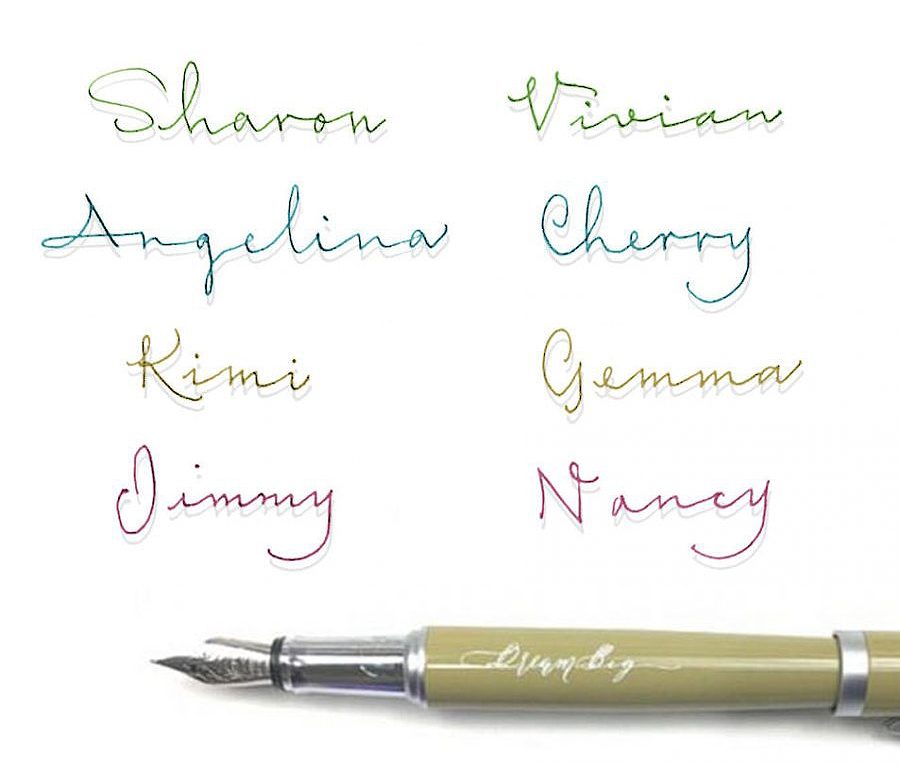 Sharon Vivian
Angelina Cherry
Kimi Gemma
Jimmy Nancy
Dream Big